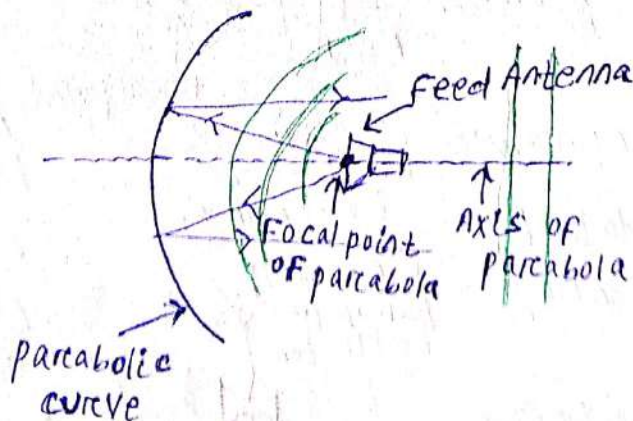 Feed Antenna
Focal point
of parabola
Axis of
parabola
parabolic
curve